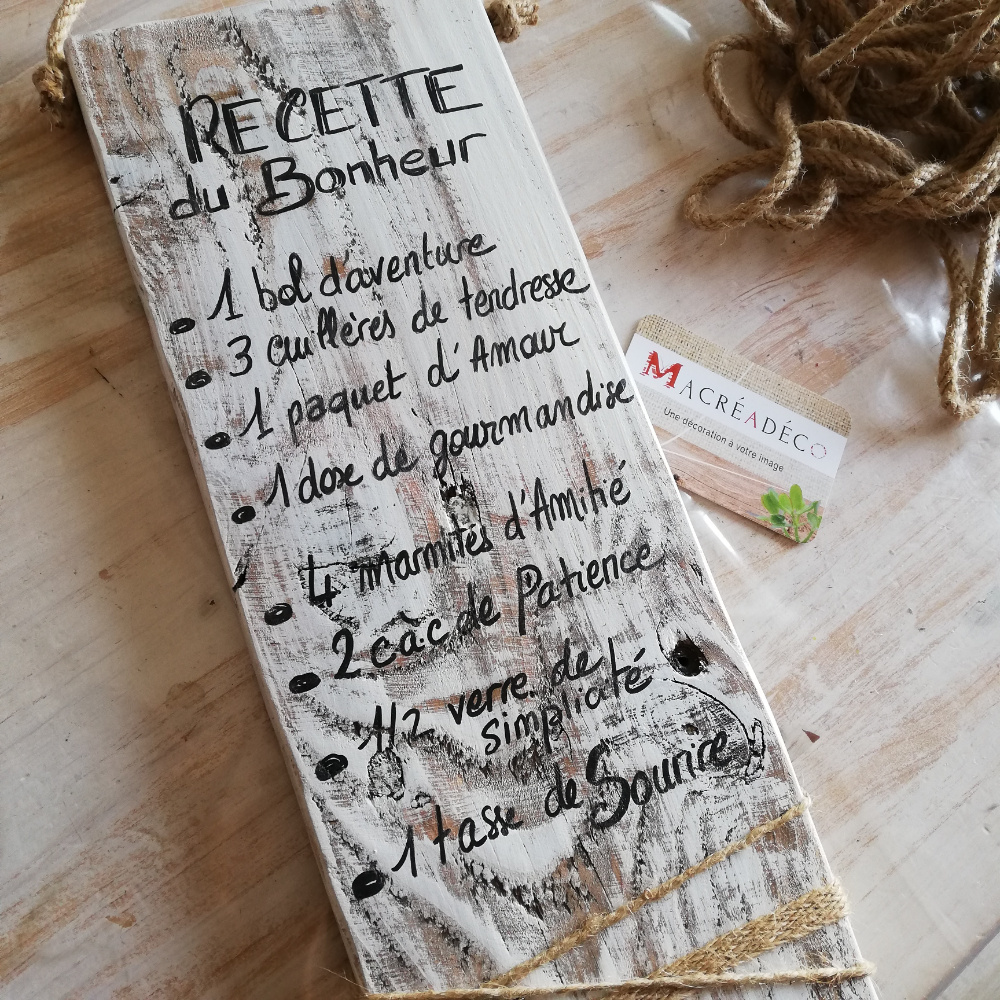 RECETTE
du Bonheur
1 bol d'aventure
3 cuillères de tendresse
1 paquet d'Amour
1 dose de gourmandise
4 marmites d'Amitié
2 càc de Patience
1/2 verre de
simplicité
1 tasse de Sourire
MACRÉADÉCO
Une décoration à votre image